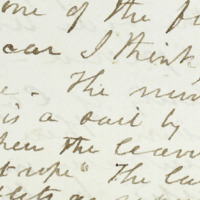 one of the fi
car I think
e. The num
is a sail by
hen the leav
t rope" The la